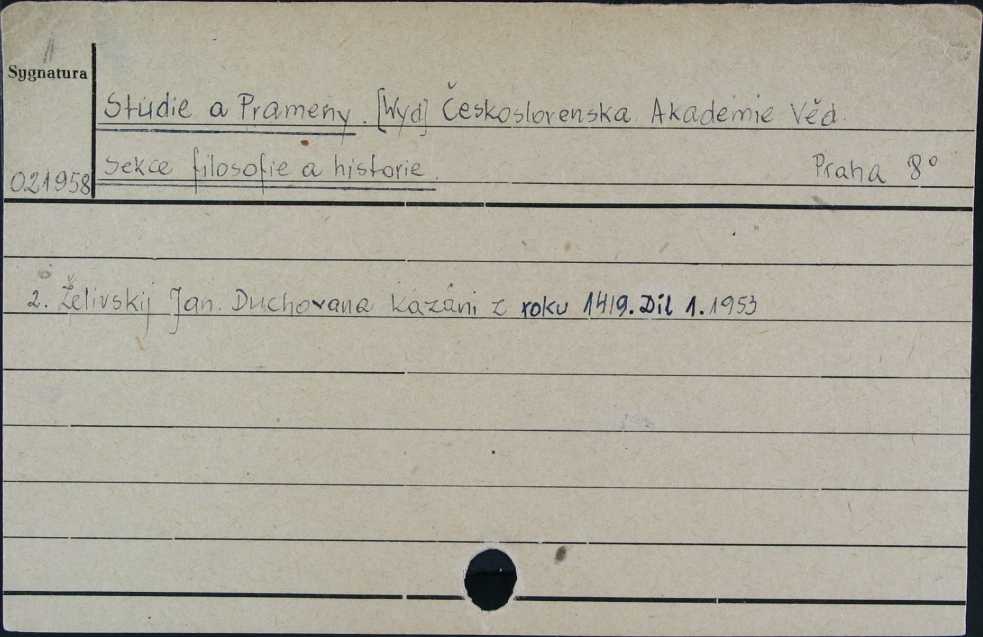 Sygnatura
Studie a Prameny. [Wyd] Československa Akademie Věd.
Sekce filosofie a historie. Praha 8°
021958
2. Želivskij Jan. Duchovana kázáni z roku 1419. Díl 1. 1953